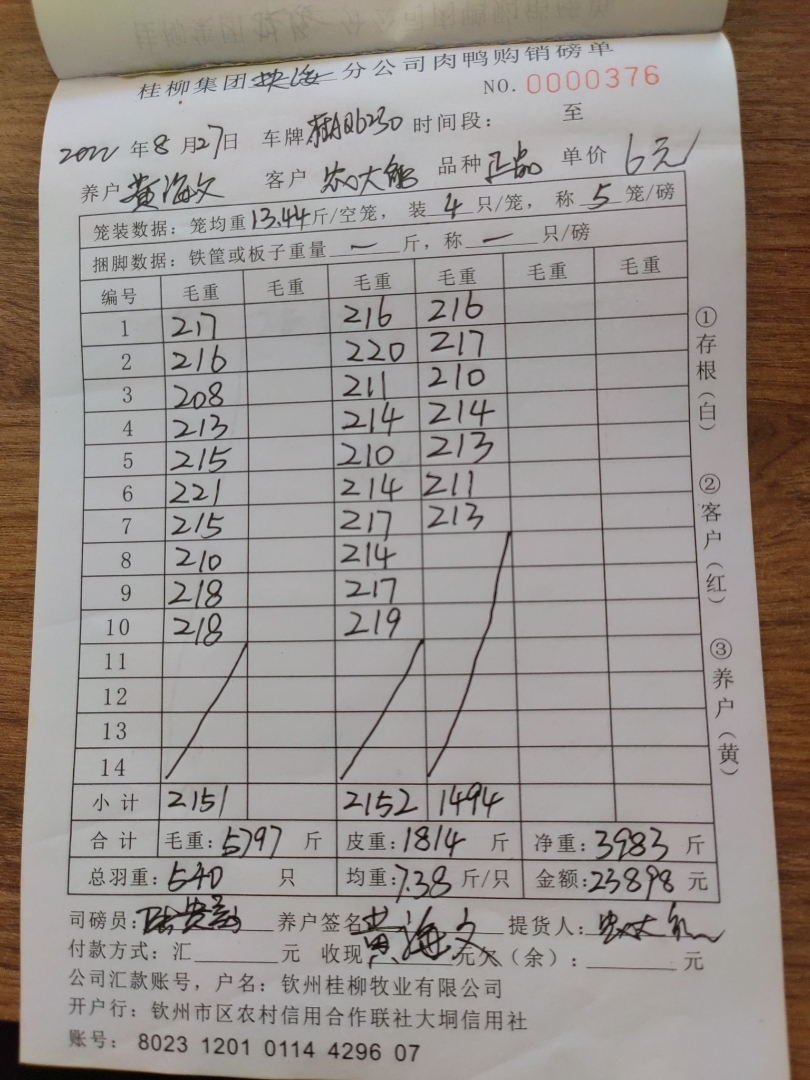 桂柳集团 分公司肉鸭购销磅单
NO. 0000376
2022 年 8 月 27 日 车牌 桂AQ6230 时间段: 至
养户 黄海文 客户 农大能 品种 正品 单价 6元
笼装数据: 笼均重 13.44 斤/空笼, 装 4 只/笼, 称 5 笼/磅
捆脚数据: 铁筐或板子重量 一 斤, 称 一 只/磅
编号 毛重 毛重 毛重 毛重 毛重 毛重
1 217 216 216
2 216 220 217
3 208 211 210
4 213 214 214
5 215 210 213
6 221 214 211
7 215 217 213
8 210 214
9 218 217
10 218 219
11
12
13
14
小计 2151 2152 1494
合计 毛重: 5797 斤 皮重: 1814 斤 净重: 3983 斤
总羽重: 540 只 均重: 7.38 斤/只 金额: 23898 元
司磅员: 养户签名 黄海文 提货人: 农大能
付款方式: 汇 元 收现 元欠(余): 元
公司汇款账号, 户名: 钦州桂柳牧业有限公司
开户行: 钦州市区农村信用合作联社大垌信用社
账号: 8023 1201 0114 4296 07
①存根(白)
②客户(红)
③养户(黄)